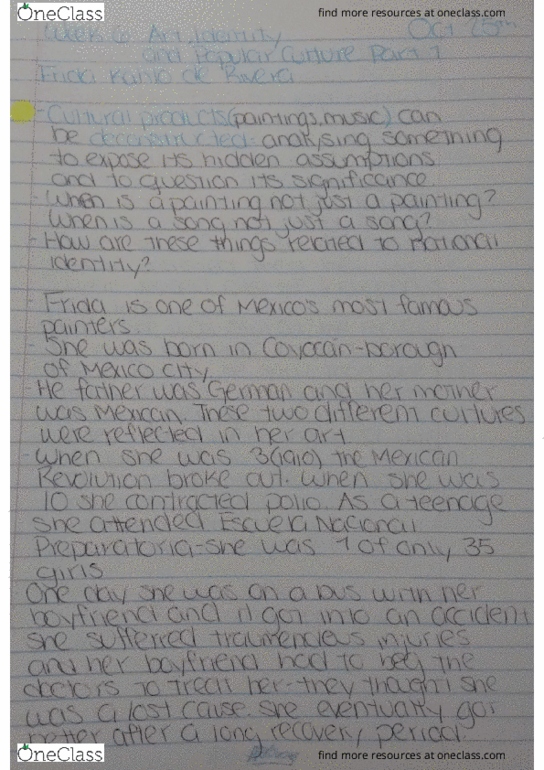 OneClass
find more resources at oneclass.com
Week 6: Art, Identity Oct 25th
and Popular Culture Part 1
Frida Kahlo de Rivera
- Cultural products (paintings, music) can
be deconstructed: analysing something
to expose its hidden assumptions
and to question its significance
- When is a painting not just a painting?
When is a song not just a song?
- How are these things related to national
identity?
- Frida is one of Mexico's most famous
painters.
- She was born in Coyocán-borough
of Mexico City
- He father was German and her mother
was Mexican. These two different cultures
were reflected in her art
- When she was 3(1910) the Mexican
Revolution broke out. When she was
10 she contracted polio. As a teenage
she attended Escuela Nacional
Preparatoria-she was 1 of only 35
girls
One day she was on a bus with her
boyfriend and it got into an accident
she sufferred traumendous injuries
and her boyfriend had to beg the
doctors to treat her-they thought she
was a lost cause. She eventually got
better after a long recovery period.
OneClass
find more resources at oneclass.com